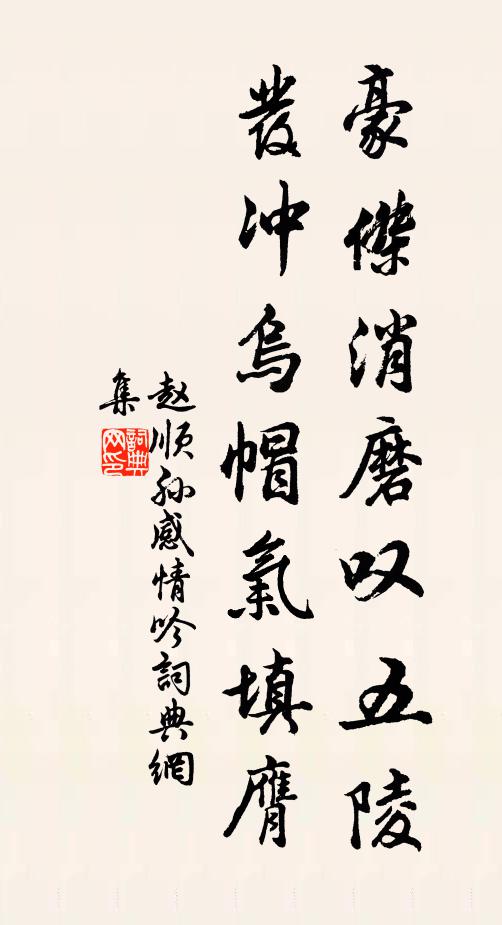 豪傑消磨叹五陵
發冲烏帽氣填膺
赵顺孙感情吟詞典網
集
詞典网印